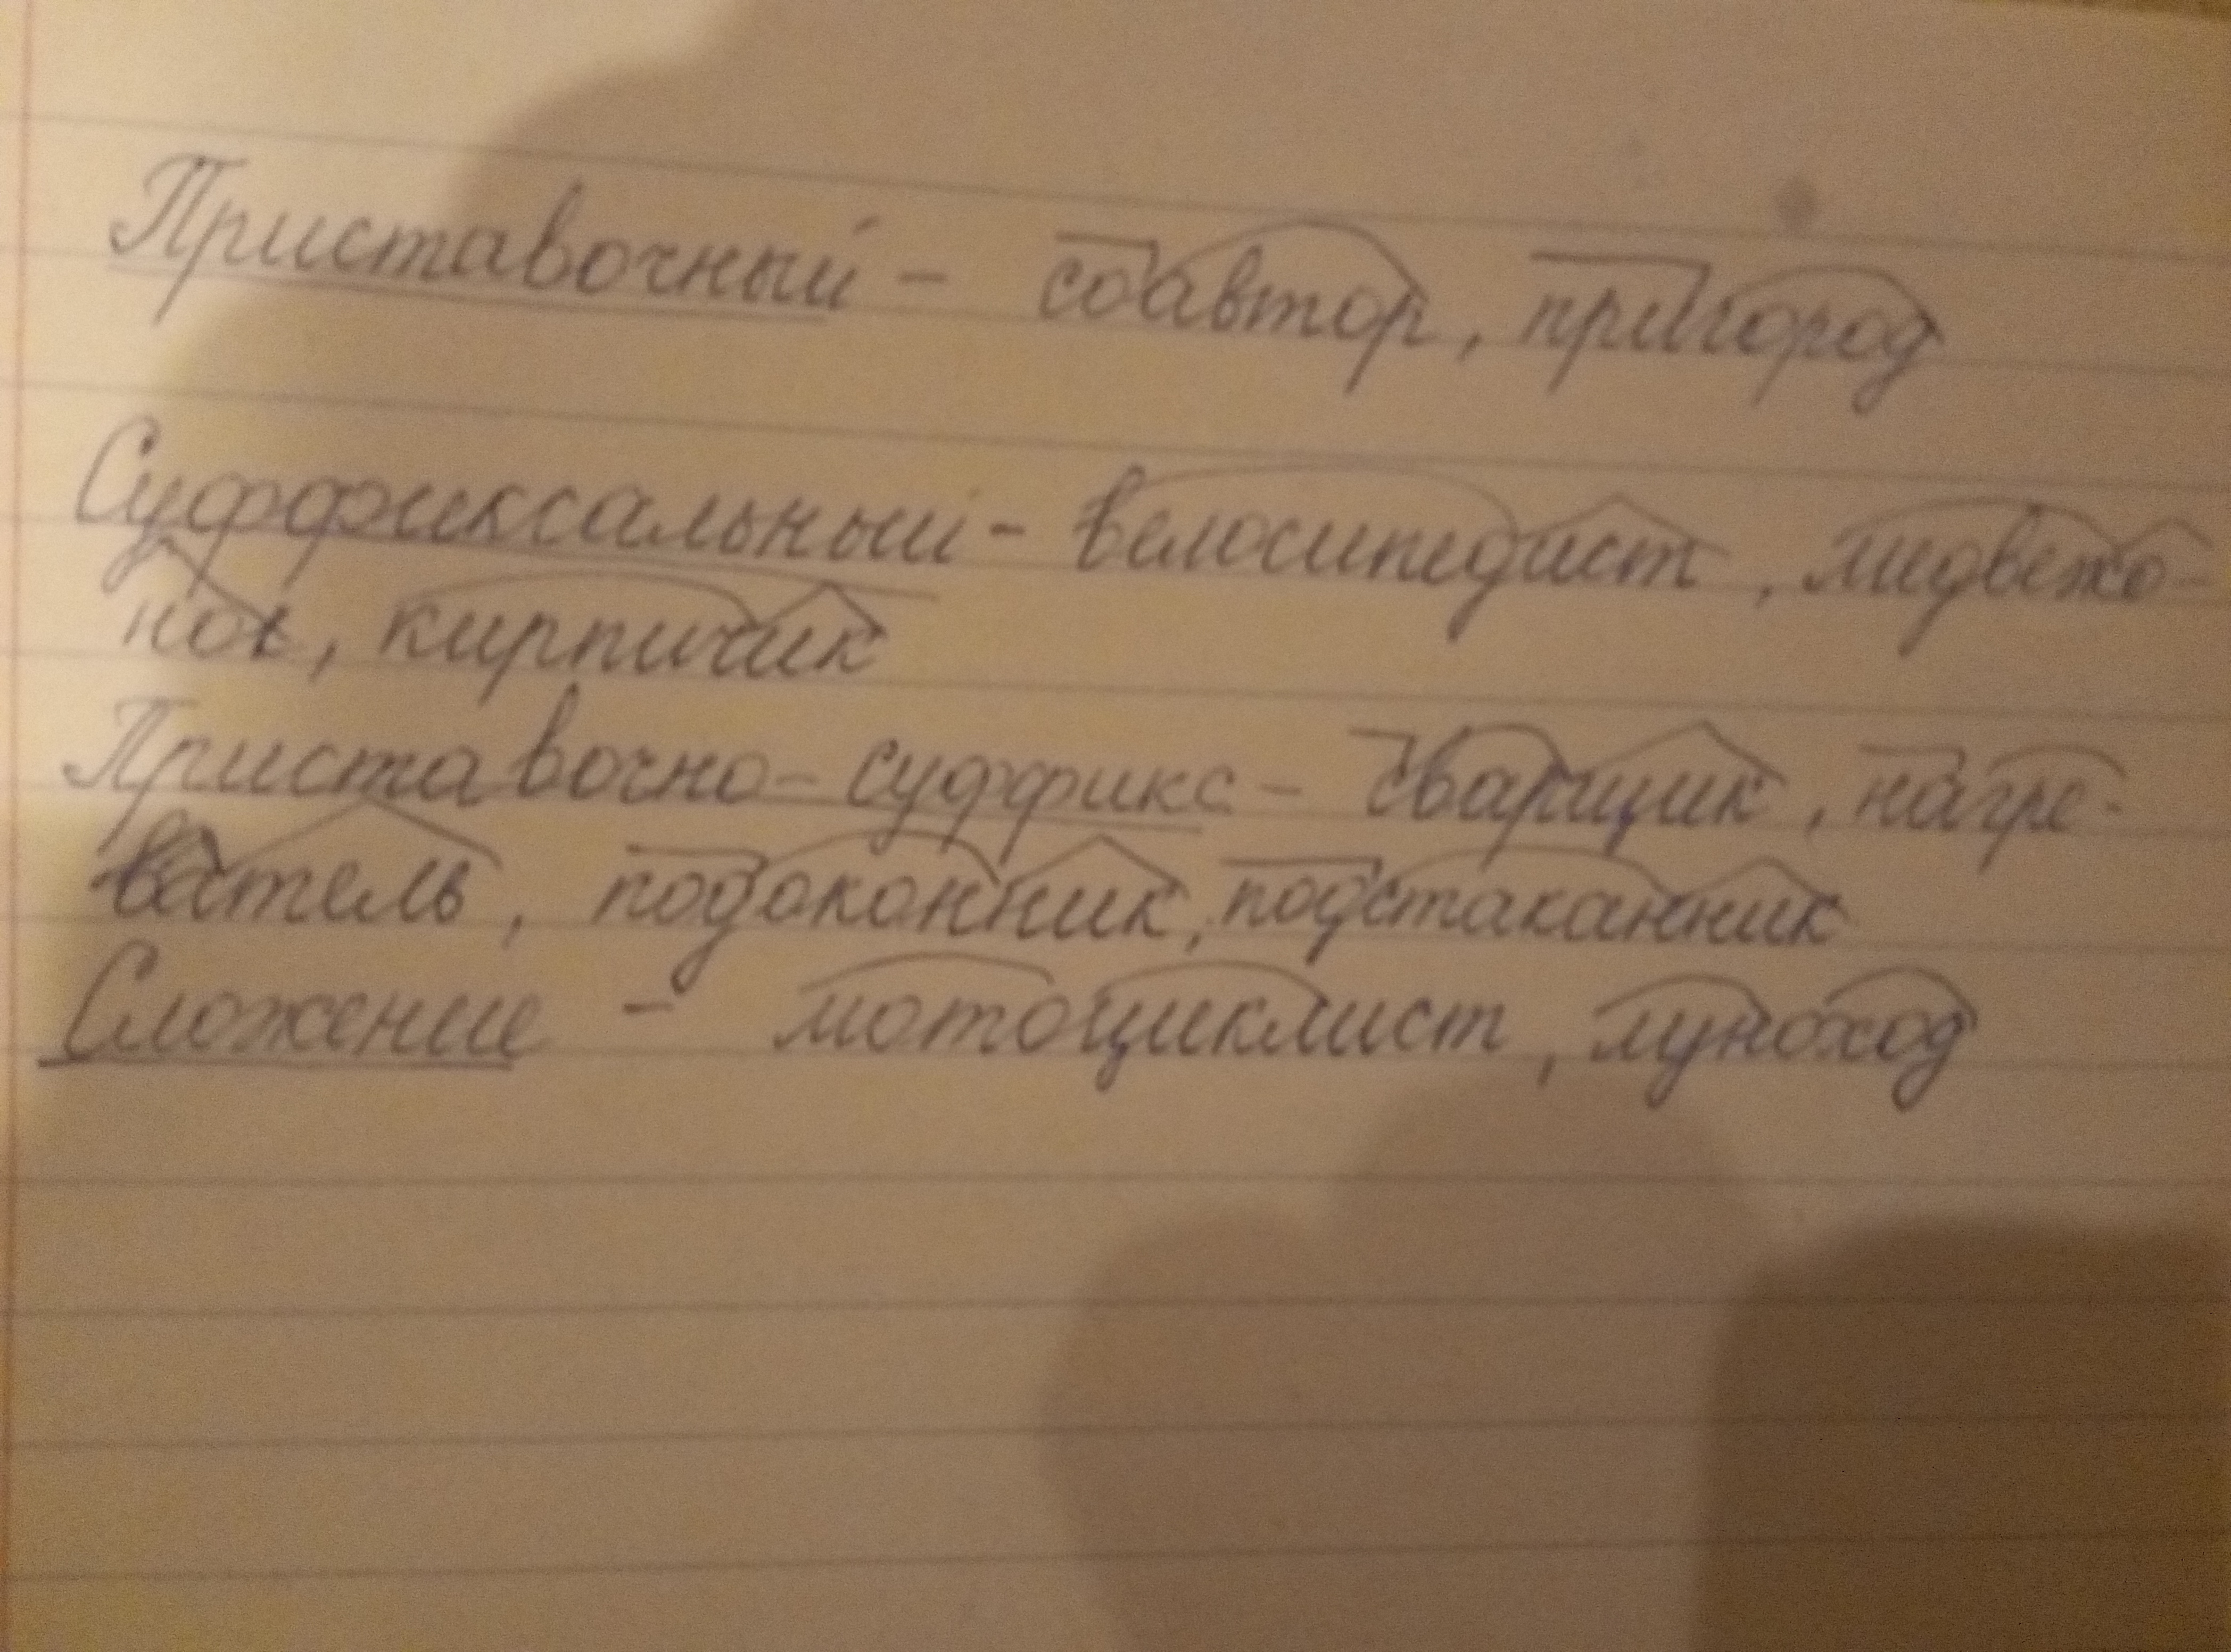 Приставочный - соавтор, пригород
Суффиксальный - велосипедист, медвежо-
нок, кирпичик
Приставочно-суффикс - сварщик, нагре-
ватель, подоконник, подстаканник
Сложение - мотоциклист, луноход